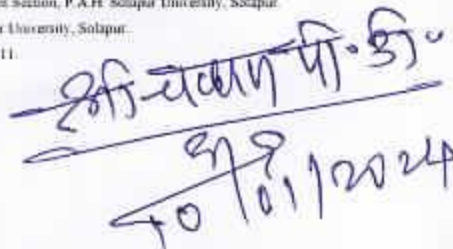 Section, P.A.H. Solapur University, Solapur.
University, Solapur.
11.
श्री चव्हाण पी. डी.
10/01/2024